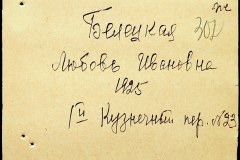 Белецкая 302
Любовь Ивановна
1925
Iй Кузнечный пер. №23